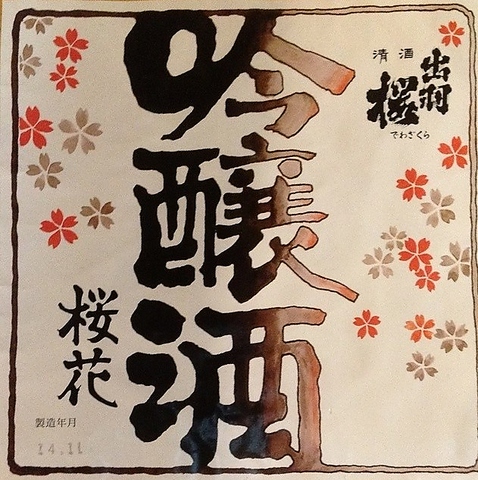 清酒
出羽
桜
でわざくら
吟醸酒
桜花
製造年月
14.11